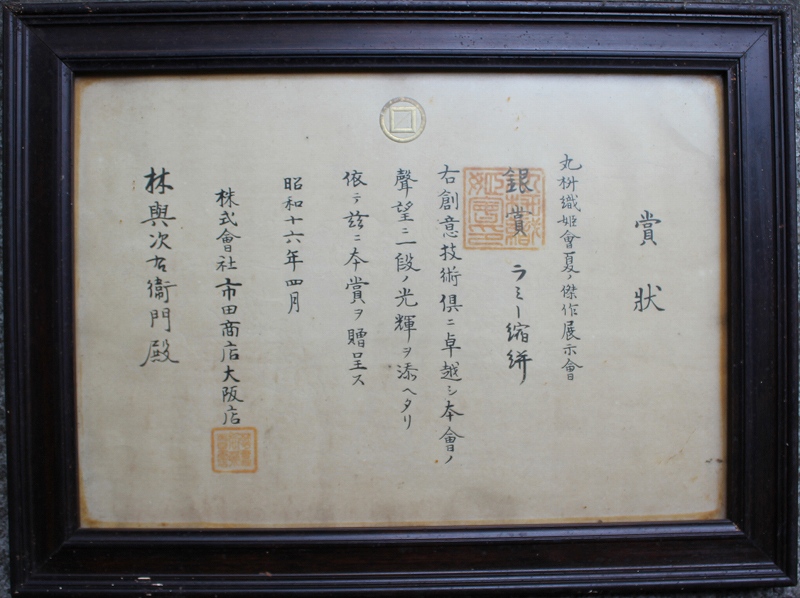 賞狀
丸枡織姫會夏ノ傑作展示會
銀賞 ラミー縮絣
右創意技術俱ニ卓越シ本會ノ
聲望ニ一段ノ光輝ヲ添ヘタリ
依テ玆ニ本賞ヲ贈呈ス
昭和十六年四月
株式會社市田商店大阪店
林與次右衞門殿